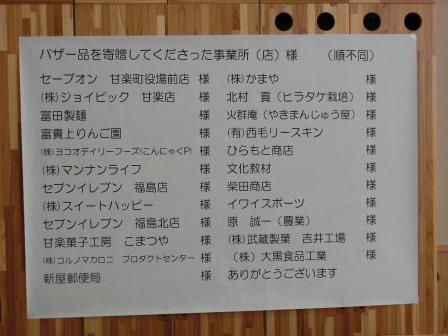 バザー品を寄贈してくださった事業所（店）様　（順不同）
セーブオン　甘楽町役場前店　様
(株)ジョイピック　甘楽店　様
富田製麺　様
富貴上りんご園　様
(株)ヨコオデイリーフーズ(こんにゃくP)　様
(株)マンナンライフ　様
セブンイレブン　福島店　様
(株)スイートハッピー　様
セブンイレブン　福島北店　様
甘楽菓子工房　こまつや　様
(株)コルノマカロニ　プロダクトセンター　様
新屋郵便局　様
(株)かまや　様
北村　貢（ヒラタケ栽培）　様
火群庵（やきまんじゅう屋）　様
(有)西毛リースキン　様
ひらもと商店　様
文化教材　様
柴田商店　様
イワイスポーツ　様
原　誠一（農業）　様
(株)武蔵製菓　吉井工場　様
（株）大黒食品工業　様
ありがとうございます